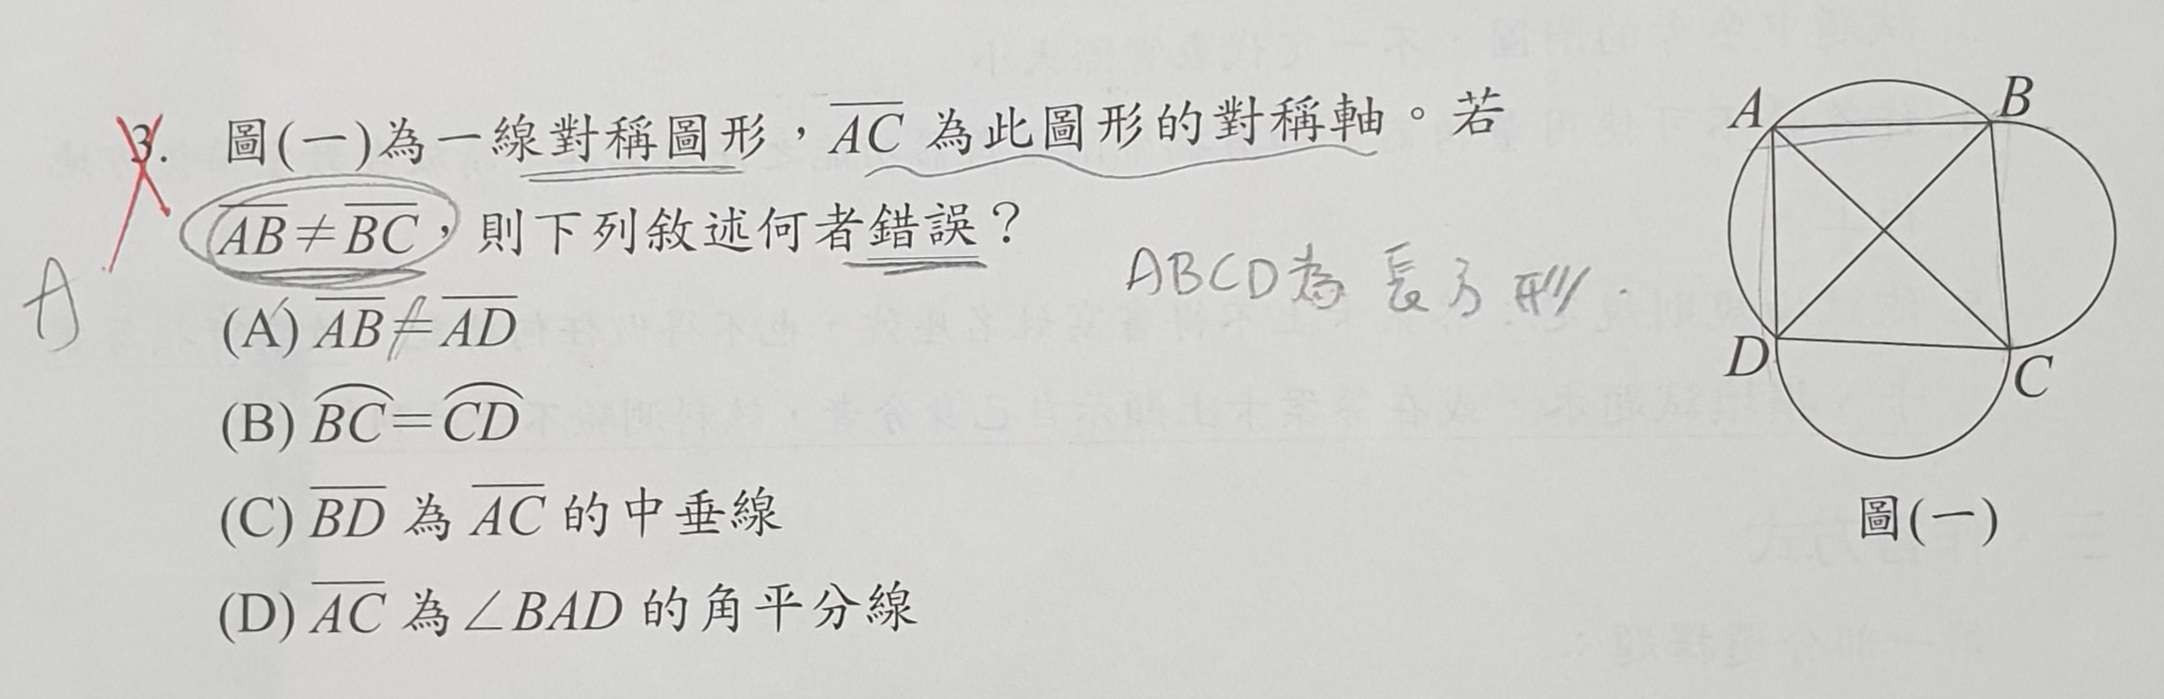 3. 圖(一)為一線對稱圖形，AC 為此圖形的對稱軸。若
AB≠BC，則下列敘述何者錯誤？
(A) AB=AD
(B) BC=CD
(C) BD 為 AC 的中垂線
(D) AC 為∠BAD 的角平分線
A
ABCD為長方形.
A
B
D
C
圖(一)